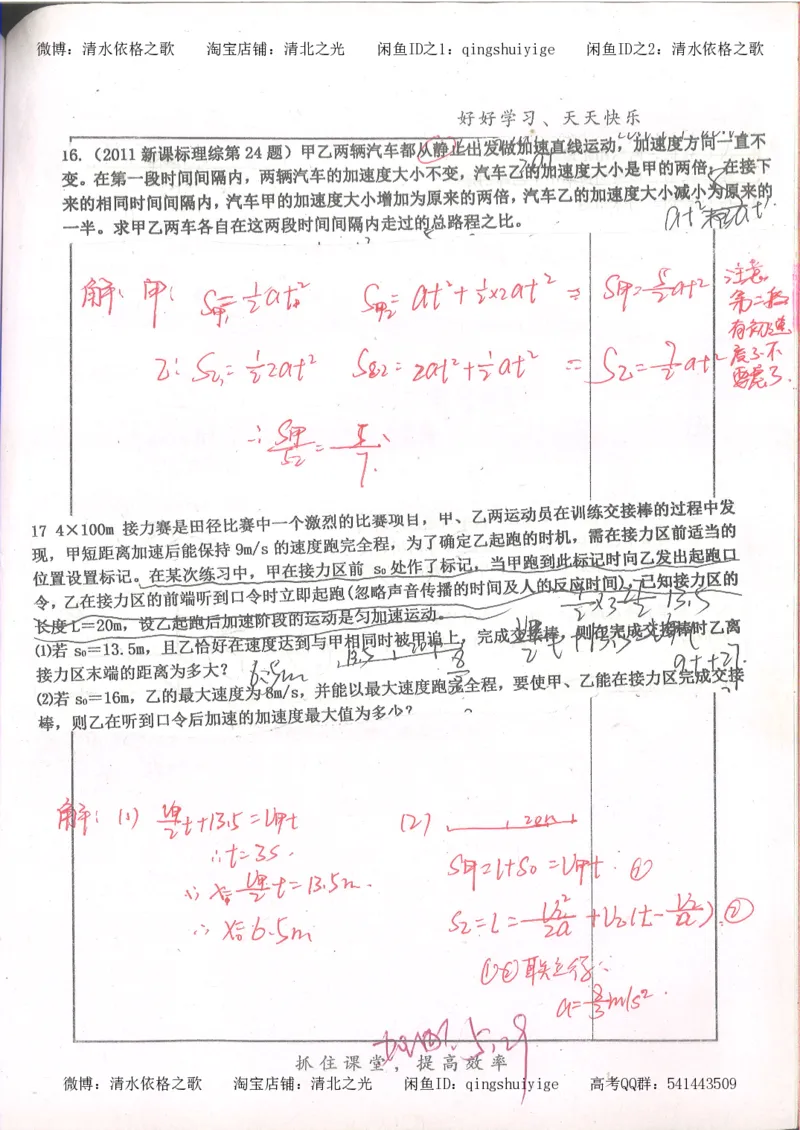 微博：清水依格之歌 淘宝店铺：清北之光 闲鱼ID之1：qingshuiyige 闲鱼ID之2：清水依格之歌
好好学习、天天快乐
16.（2011 新课标理综第 24 题）甲乙两辆汽车都从静止出发做加速直线运动，加速度方向一直不
变。在第一段时间间隔内，两辆汽车的加速度大小不变，汽车乙的加速度大小是甲的两倍；在接下
来的相同时间间隔内，汽车甲的加速度大小增加为原来的两倍，汽车乙的加速度大小减小为原来的
一半。求甲乙两车各自在这两段时间间隔内走过的总路程之比。
解：甲：S甲₁=½at² S甲₂=at²+½×2at² ⇒ S甲=5/2at²
注意
第二段
有初速
度了不
要忘了.
乙：S乙₁=½2at² S乙₂=2at²+½at² ⇒ S乙=7/2at²
∴S甲/S乙=5/7.
17 4×100m 接力赛是田径比赛中一个激烈的比赛项目，甲、乙两运动员在训练交接棒的过程中发
现，甲短距离加速后能保持 9m/s 的速度跑完全程，为了确定乙起跑的时机，需在接力区前适当的
位置设置标记。在某次练习中，甲在接力区前 s₀处作了标记，当甲跑到此标记时向乙发出起跑口
令，乙在接力区的前端听到口令时立即起跑(忽略声音传播的时间及人的反应时间)，已知接力区的
长度 L＝20m，设乙起跑后加速阶段的运动是匀加速运动。
⑴若 s₀＝13.5m，且乙恰好在速度达到与甲相同时被甲追上，完成交接棒，则在完成交接棒时乙离
接力区末端的距离为多大？ 6.5m
⑵若 s₀＝16m，乙的最大速度为 8m/s，并能以最大速度跑完全程，要使甲、乙能在接力区完成交接
棒，则乙在听到口令后加速的加速度最大值为多少？
解：(1) V甲/2t+13.5=V甲t
∴t=3s.
∴x=V甲/2t=13.5m.
∴x=6.5m
(2) 20m
S甲=L+S₀=V甲t ①
S乙=L=V乙²/2a+V乙(t-V乙/a).②
①②联立得：
a=8/3m/s².
抓住课堂，提高效率
微博：清水依格之歌 淘宝店铺：清北之光 闲鱼ID：qingshuiyige 高考QQ群：541443509